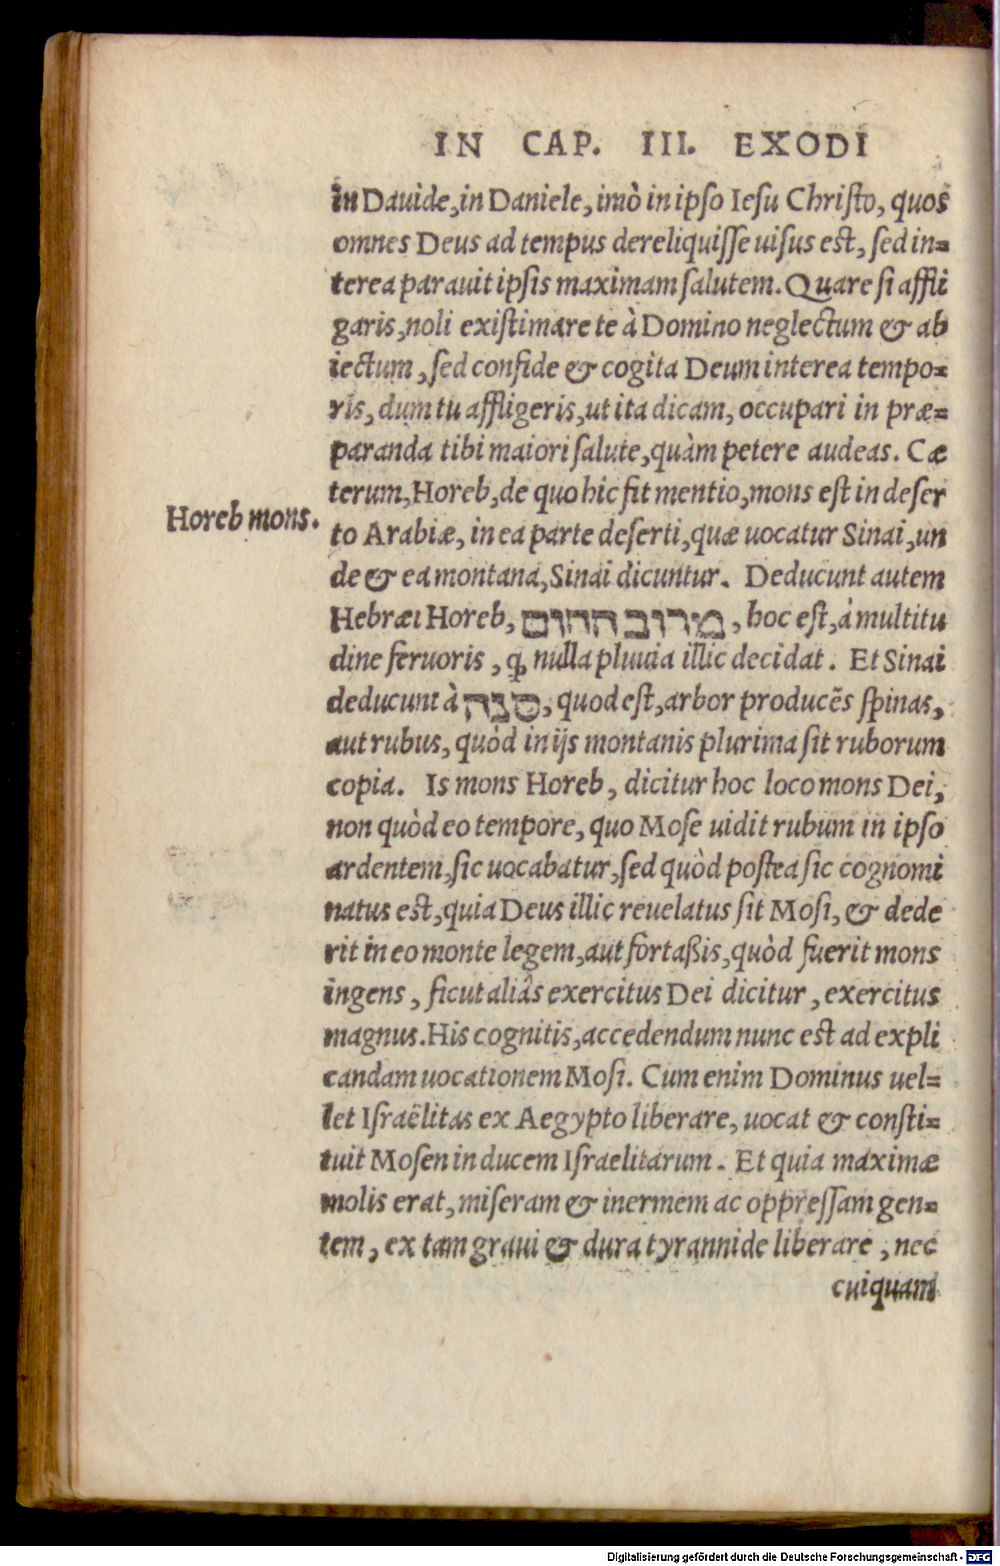 IN CAP. III. EXODI
in Dauide, in Daniele, imò in ipso Iesu Christo, quos
omnes Deus ad tempus dereliquisse uisus est, sed in=
terea parauit ipsis maximam salutem. Quare si affli
garis, noli existimare te à Domino neglectum & ab
iectum, sed confide & cogita Deum interea tempo=
ris, dum tu affligeris, ut ita dicam, occupari in præ=
paranda tibi maiori salute, quàm petere audeas. Cæ
terum, Horeb, de quo hic fit mentio, mons est in deser
Horeb mons.
to Arabiæ, in ea parte deserti, quæ uocatur Sinai, un
de & ea montana, Sinai dicuntur. Deducunt autem
Hebræi Horeb, מירוב החום, hoc est, à multitu
dine feruoris, ꝙ nulla pluuia illic decidat. Et Sinai
deducunt à סנה, quod est, arbor producẽs spinas,
aut rubus, quòd in ijs montanis plurima sit ruborum
copia. Is mons Horeb, dicitur hoc loco mons Dei,
non quòd eo tempore, quo Mose uidit rubum in ipso
ardentem, sic uocabatur, sed quòd postea sic cognomi
natus est, quia Deus illic reuelatus sit Mosi, & dede
rit in eo monte legem, aut fortaßis, quòd fuerit mons
ingens, sicut aliâs exercitus Dei dicitur, exercitus
magnus. His cognitis, accedendum nunc est ad expli
candam uocationem Mosi. Cum enim Dominus uel=
let Israëlitas ex Aegypto liberare, uocat & consti=
tuit Mosen in ducem Israelitarum. Et quia maximæ
molis erat, miseram & inermem ac oppressam gen=
tem, ex tam graui & dura tyrannide liberare, nec
cuiquam
Digitalisierung gefördert durch die Deutsche Forschungsgemeinschaft - DFG